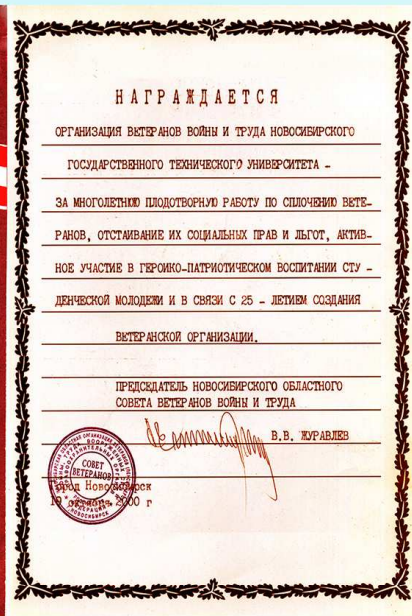 НАГРАЖДАЕТСЯ
ОРГАНИЗАЦИЯ ВЕТЕРАНОВ ВОЙНЫ И ТРУДА НОВОСИБИРСКОГО
ГОСУДАРСТВЕННОГО ТЕХНИЧЕСКОГО УНИВЕРСИТЕТА -
ЗА МНОГОЛЕТНЮЮ ПЛОДОТВОРНУЮ РАБОТУ ПО СПЛОЧЕНИЮ ВЕТЕ-
РАНОВ, ОТСТАИВАНИЕ ИХ СОЦИАЛЬНЫХ ПРАВ И ЛЬГОТ, АКТИВ-
НОЕ УЧАСТИЕ В ГЕРОИКО-ПАТРИОТИЧЕСКОМ ВОСПИТАНИИ СТУ -
ДЕНЧЕСКОЙ МОЛОДЕЖИ И В СВЯЗИ С 25 - ЛЕТИЕМ СОЗДАНИЯ
ВЕТЕРАНСКОЙ ОРГАНИЗАЦИИ.
ПРЕДСЕДАТЕЛЬ НОВОСИБИРСКОГО ОБЛАСТНОГО
СОВЕТА ВЕТЕРАНОВ ВОЙНЫ И ТРУДА
В.В. ЖУРАВЛЕВ
СОВЕТ
ВЕТЕРАНОВ
город Новосибирск
19 октября 2000 г